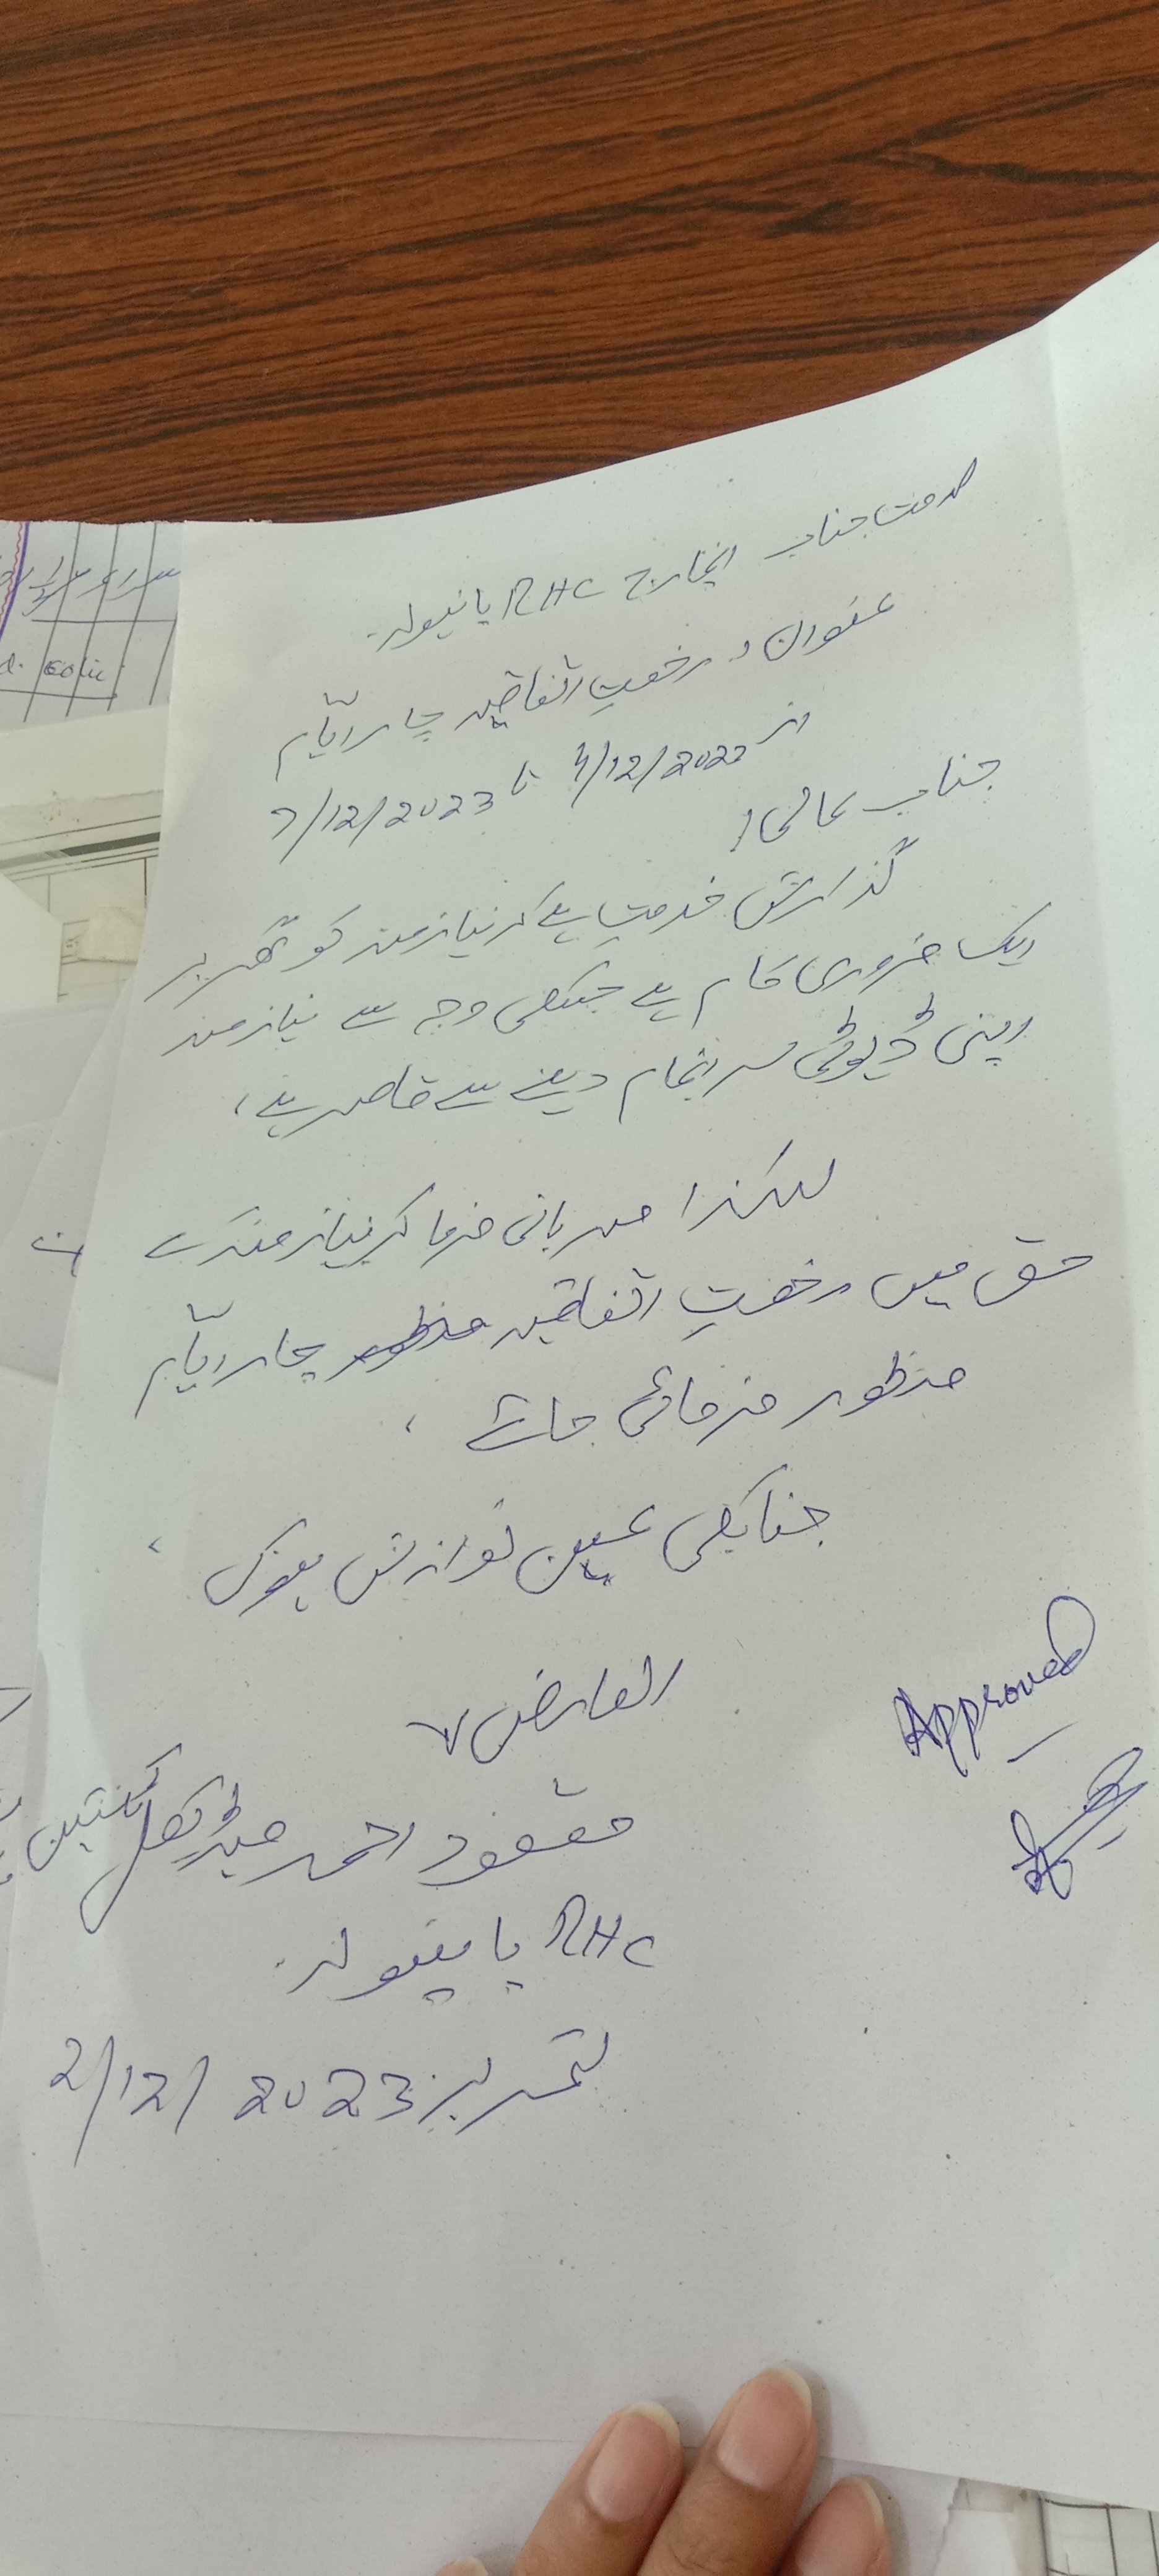 خدمت جناب انچارج RHC پانیولہ
عنوان: رخصتِ اتفاقیہ چار ایّام
از 4/12/2023 تا 7/12/2023
جنابِ عالی!
گذارش خدمت ہے کہ نیازمند کو گھر پر
ایک ضروری کام ہے جسکی وجہ سے نیازمند
اپنی ڈیوٹی سر انجام دینے سے قاصر ہے،
لہٰذا مہربانی فرما کر نیازمند کے
حق میں رخصتِ اتفاقیہ منظور چار ایّام
منظور فرمائی جائے،
جنابکی عین نوازش ہوگی،
العارض
مقصود احمد میڈیکل ٹیکنیشن
RHC پانیولہ
تحریر: 2/12/2023
Approved